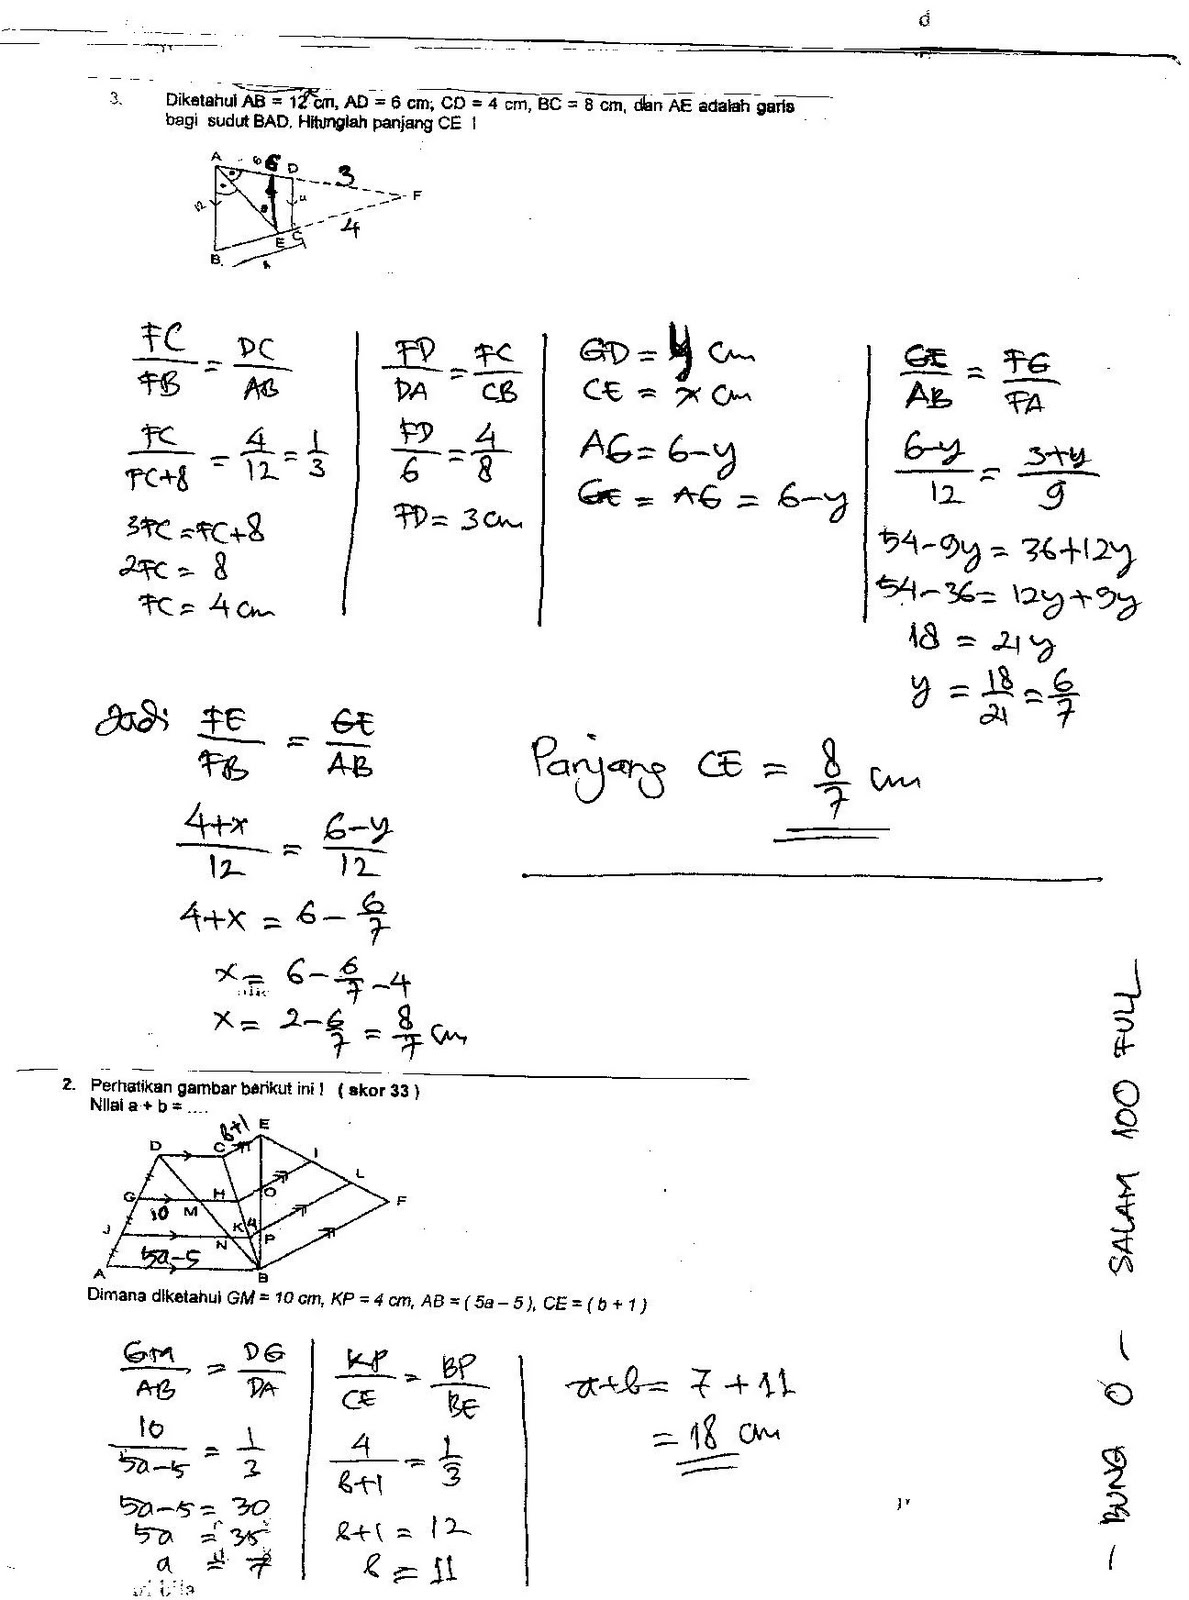 d
3. Diketahui AB = 12 cm, AD = 6 cm; CD = 4 cm, BC = 8 cm, dan AE adalah garis
bagi sudut BAD. Hitunglah panjang CE !
A 6 G D 3 F
12 4
4
B E C
8
FC/FB = DC/AB
FC/FC+8 = 4/12 = 1/3
3FC = FC+8
2FC = 8
FC = 4 cm
FD/DA = FC/CB
FD/6 = 4/8
FD = 3 cm
GD = y cm
CE = x cm
AG = 6-y
GE = AG = 6-y
GE/AB = FG/FA
6-y/12 = 3+y/9
54-9y = 36+12y
54-36 = 12y+9y
18 = 21y
y = 18/21 = 6/7
Jadi FE/FB = GE/AB
4+x/12 = 6-y/12
4+x = 6 - 6/7
x = 6 - 6/7 - 4
x = 2 - 6/7 = 8/7 cm
Panjang CE = 8/7 cm
2. Perhatikan gambar berikut ini ! ( skor 33 )
Nilai a + b = ....
b+1
D C E
I
G H O L
10 M F
J K 4
N P
5a-5
A B
Dimana diketahui GM = 10 cm, KP = 4 cm, AB = ( 5a – 5 ), CE = ( b + 1 )
GM/AB = DG/DA
10/5a-5 = 1/3
5a-5 = 30
5a = 35
a = 7
KP/CE = BP/BE
4/b+1 = 1/3
b+1 = 12
b = 11
a+b = 7 + 11
= 18 cm
- BUNG O - SALAM 100 FULL -